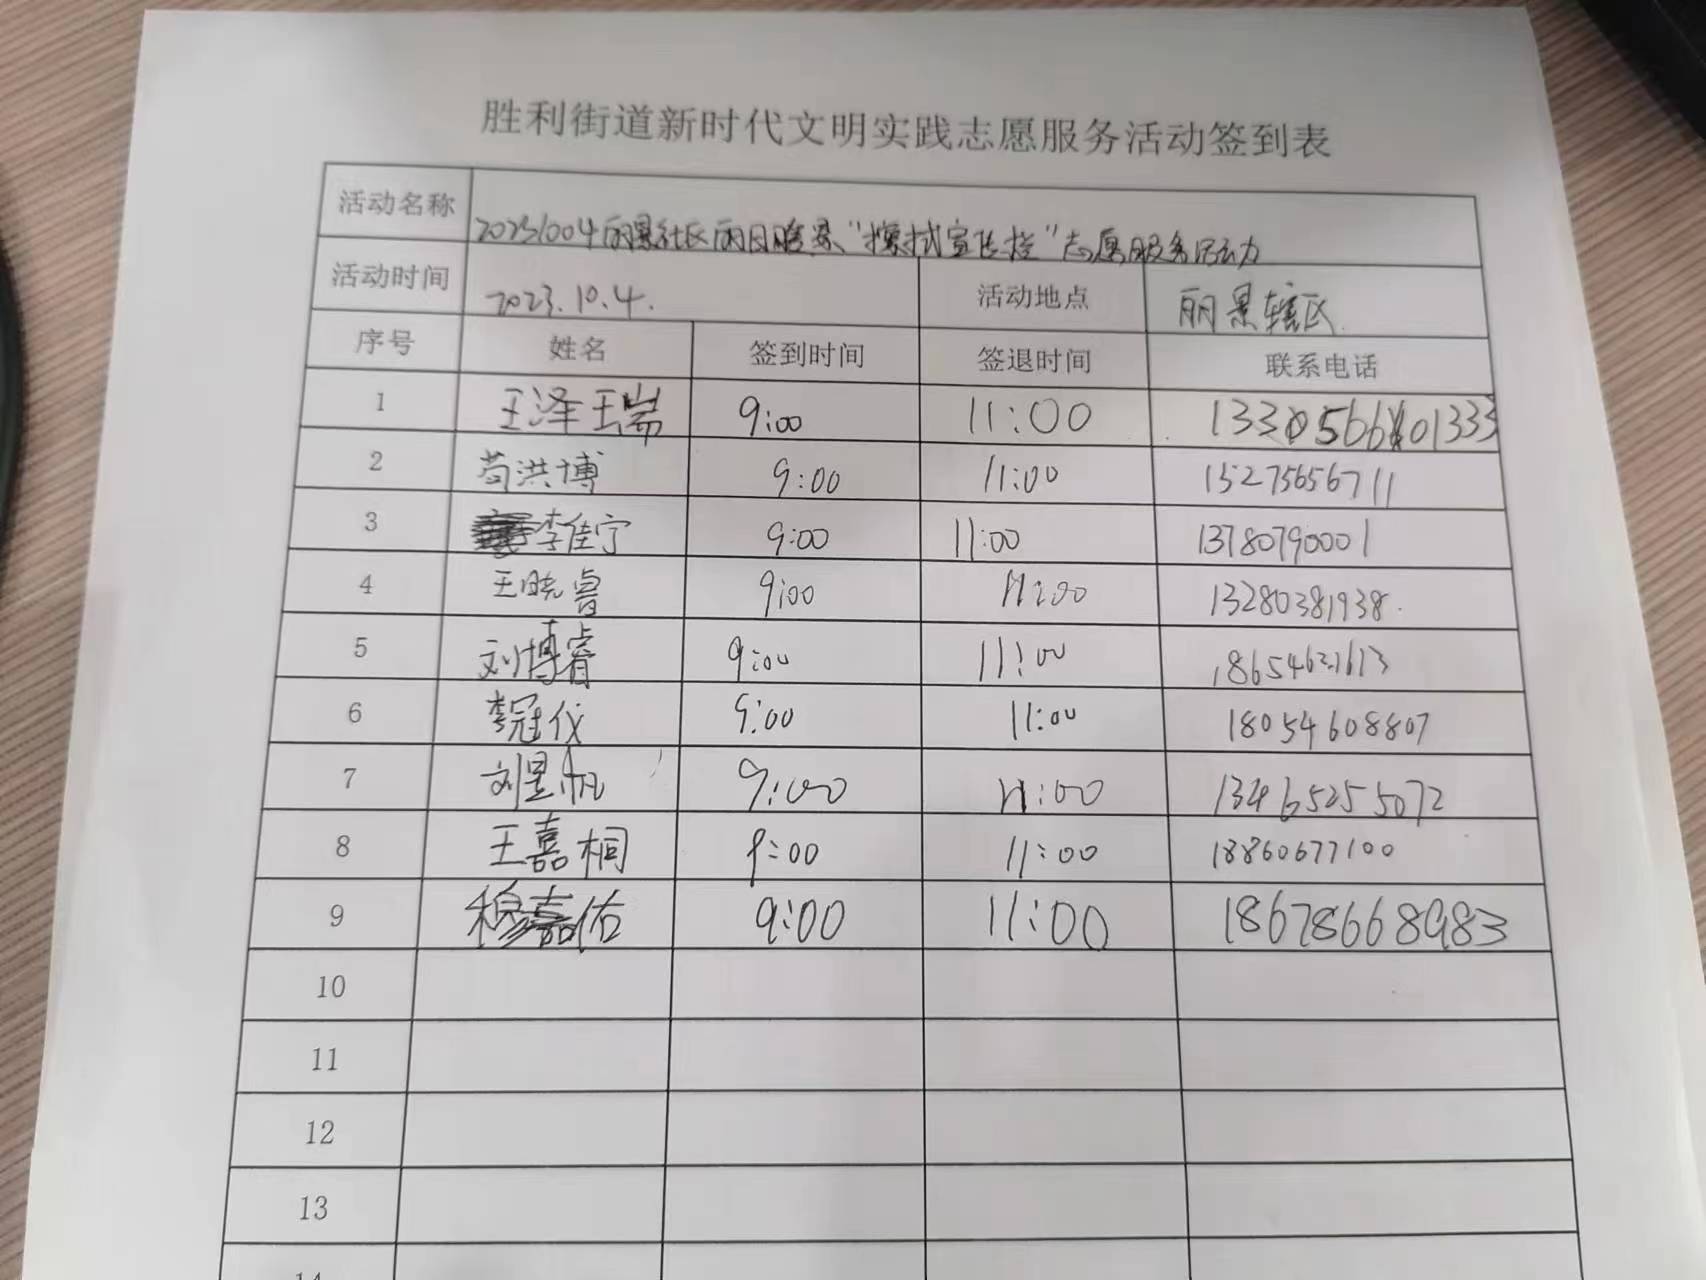 胜利街道新时代文明实践志愿服务活动签到表
活动名称 20231004丽景社区 "擦拭宣传栏"志愿服务活动
活动时间 2023.10.4. 活动地点 丽景辖区
序号 姓名 签到时间 签退时间 联系电话
1 王泽瑞 9:00 11:00
2 苟洪博 9:00 11:00 15275656711
3 李佳宁 9:00 11:00 13780790001
4 王晓睿 9:00 11:00 13280381938.
5 刘博睿 9:00 11:00
6 李冠仪 9:00 11:00 18054608807
7 刘昱帆 9:00 11:00 13465255072
8 王嘉桐 9:00 11:00 18860677100
9 穆嘉佑 9:00 11:00 18678668983
10
11
12
13
14